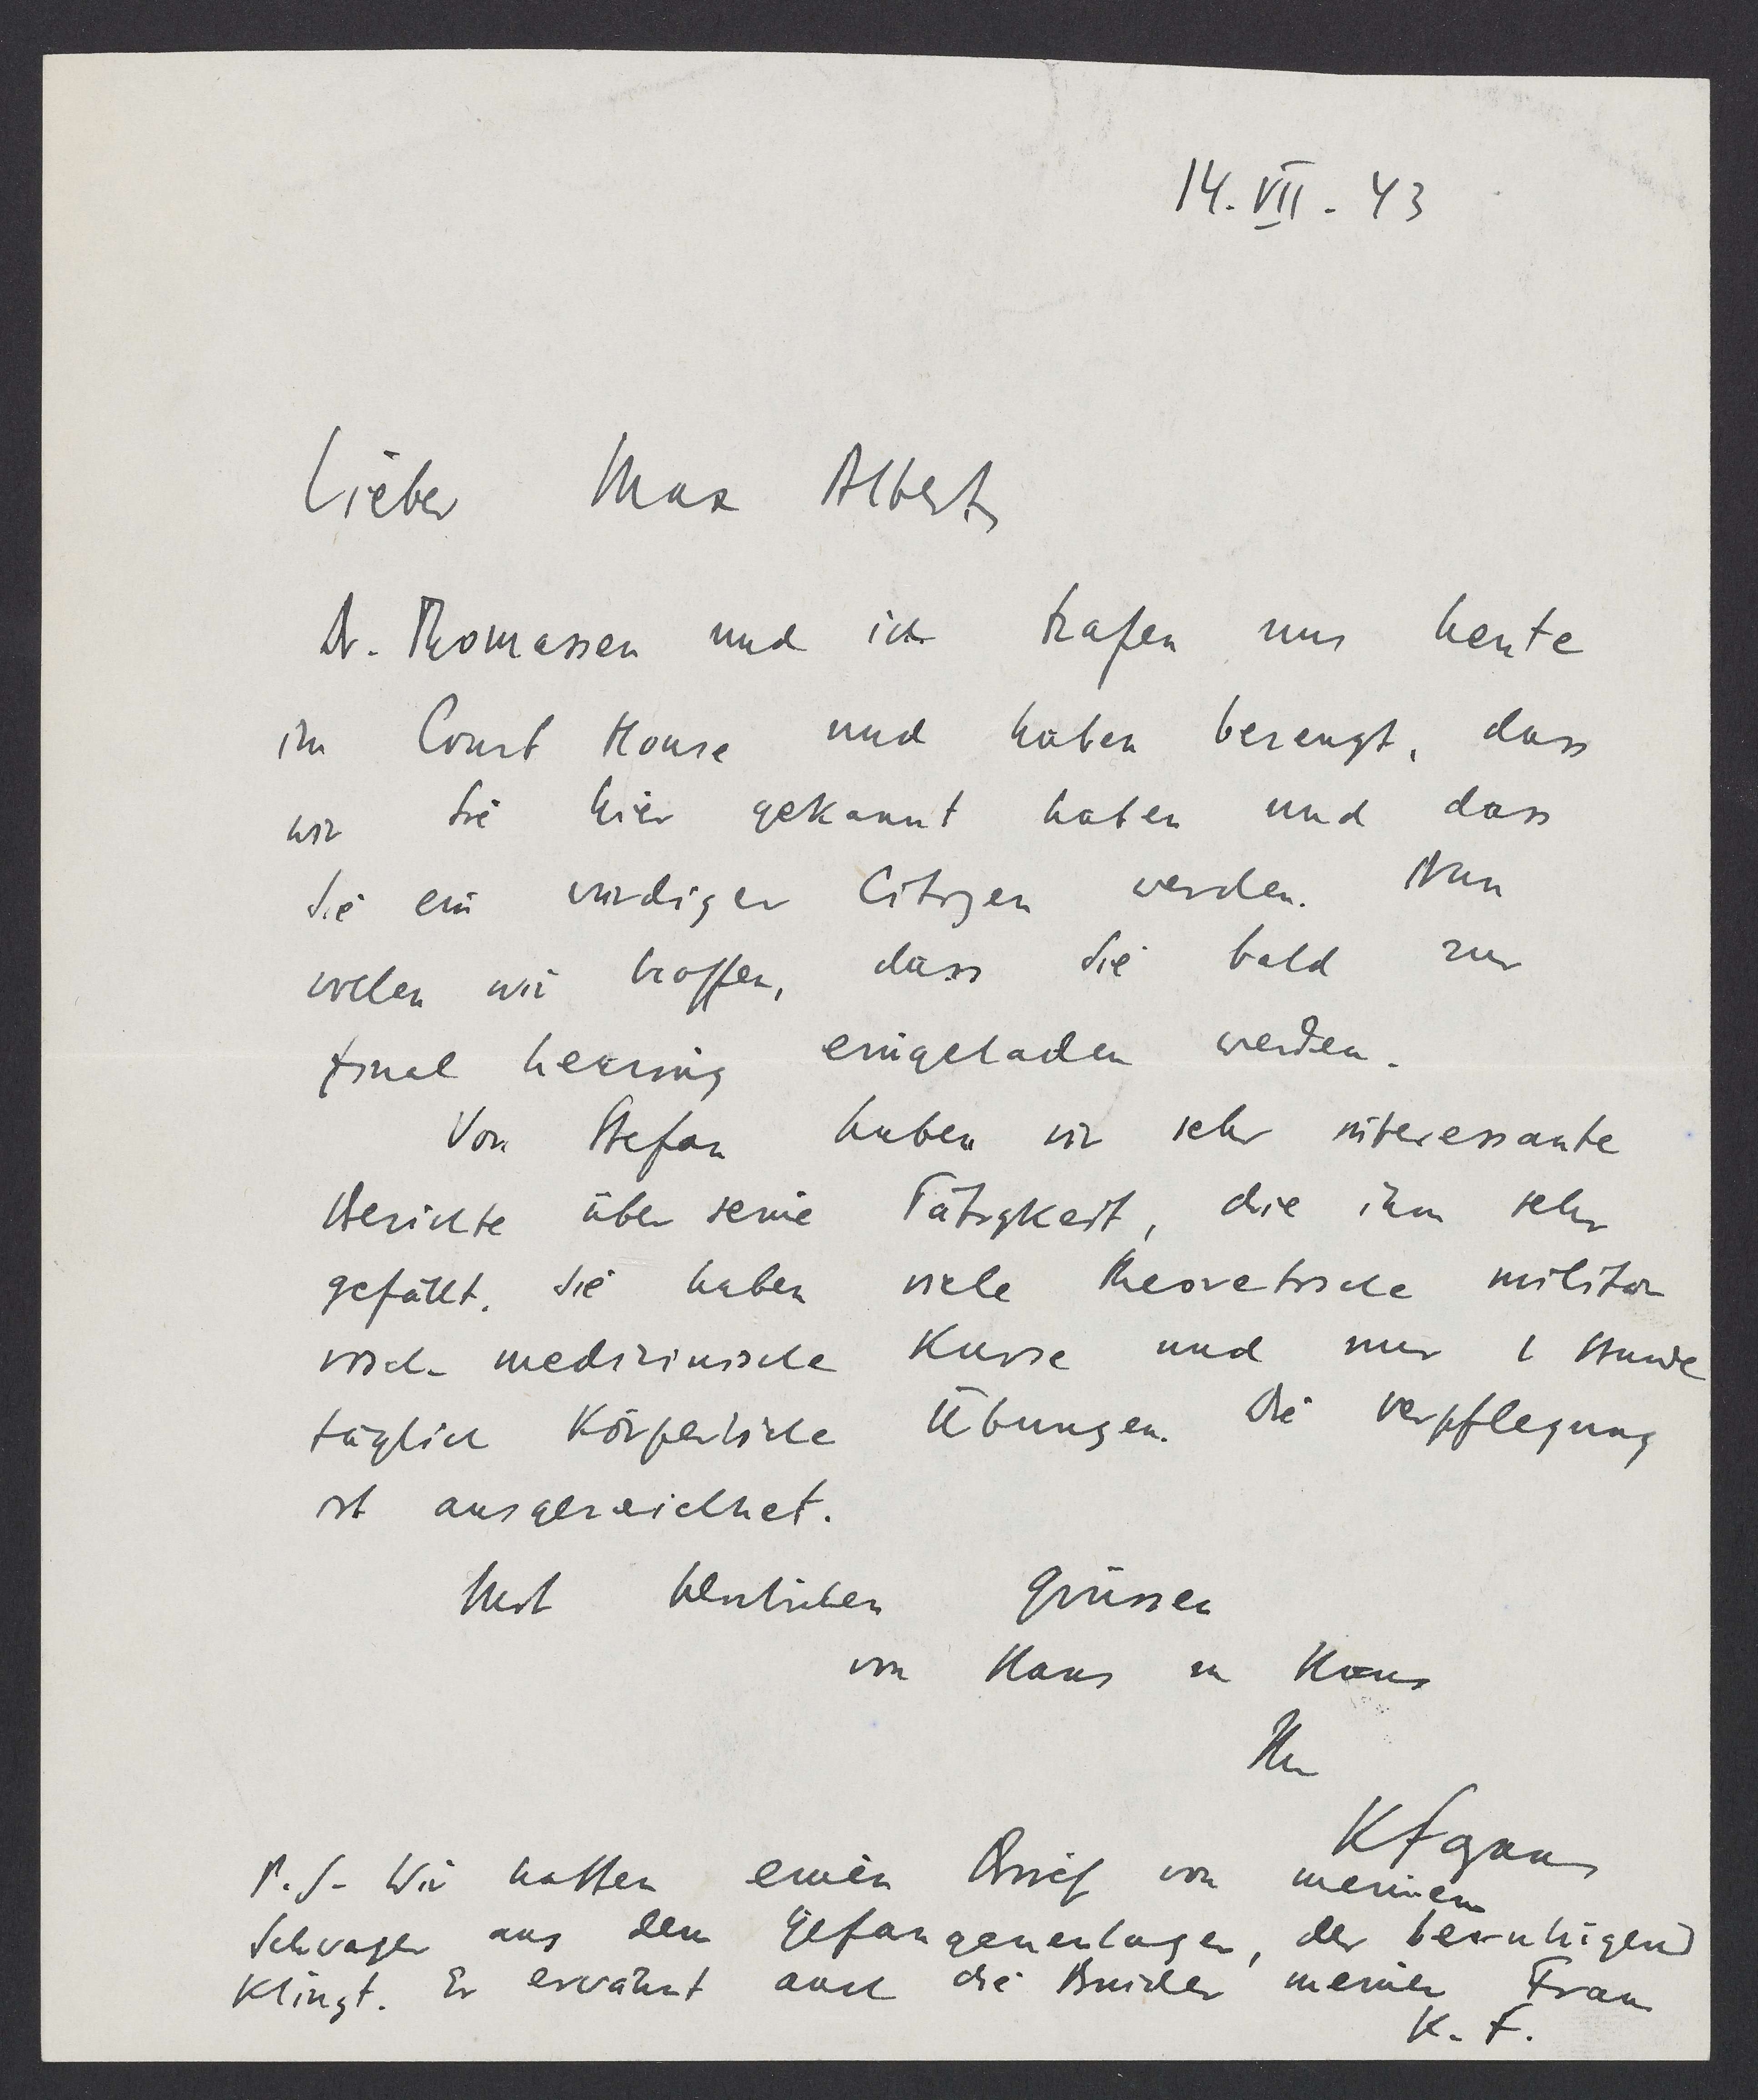 14. VII. 43
Lieber Max Albert
Dr. Thomassen und ich trafen uns heute
im Court House und haben bezeugt, dass
wir Sie hier gekannt haben und dass
Sie ein würdiger Citizen werden. Nun
wollen wir hoffen, dass Sie bald zur
final hearing eingeladen werden.
Von Stefan haben wir sehr interessante
Berichte über seine Tätigkeit, die ihm sehr
gefällt. Sie haben viele theoretische militär
risch medizinische Kurse und nur 1 Stunde
täglich Körperliche Übungen. Die Verpflegung
ist ausgezeichnet.
Mit herzlichen Grüssen
von Haus zu Haus
Ihr
P.S. Wir hatten einen Brief von meinem
Schwager aus dem Gefangenenlager, der beruhigend
klingt. Er erwähnt auch die Brüder meiner Frau
K. F.